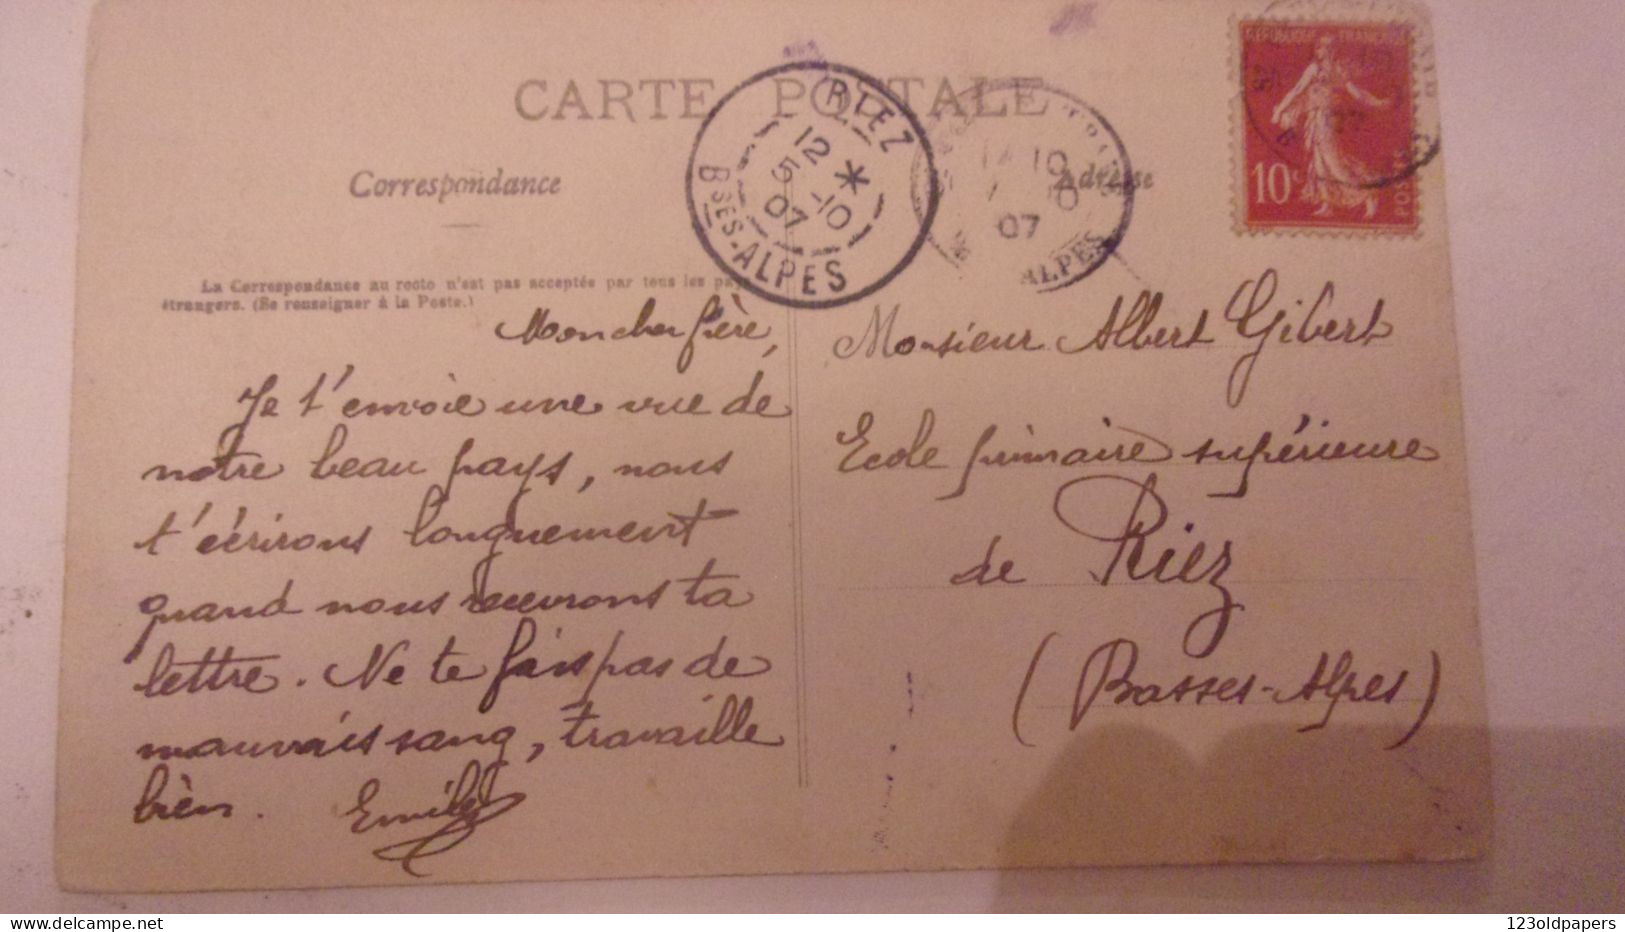 CARTE POSTALE
Correspondance
Adresse
La Correspondance au recto n'est pas acceptée par tous les pays
étrangers. (Se renseigner à la Poste.)
RIEZ
12 *
5 -10
07
Bses-ALPES
10
07
ALPES
REPUBLIQUE FRANÇAISE
10c
POSTES
Mon cher frère,
Je t'envoie une vue de
notre beau pays, nous
t'écrirons longuement
quand nous recevrons ta
lettre. Ne te fais pas de
mauvais sang, travaille
bien. Emile
Monsieur Albert Gibert
Ecole primaire supérieure
de Riez
(Basses-Alpes)
Delcampe.net
123oldpapers